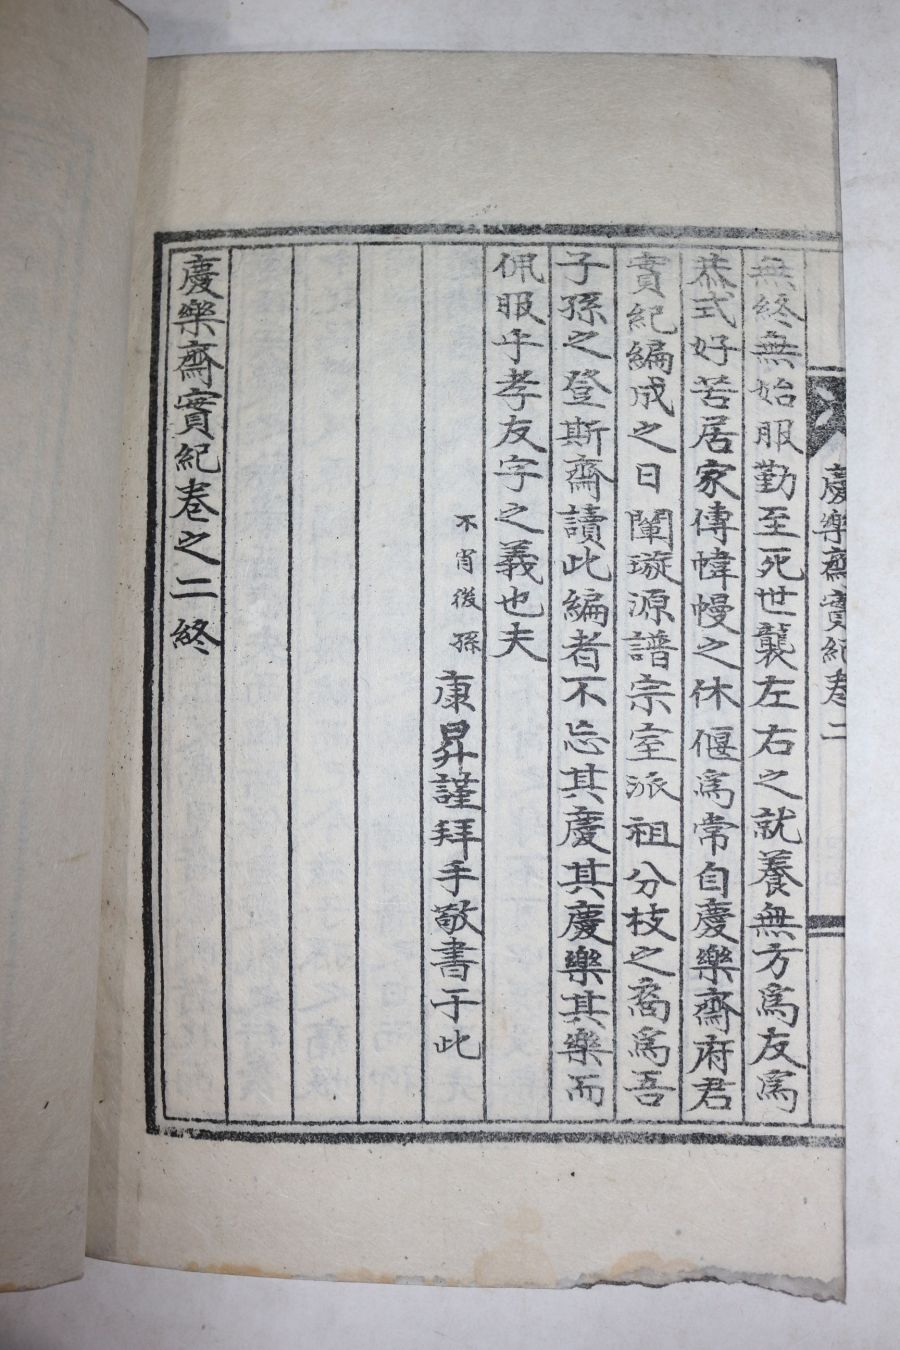 慶樂齋實紀卷二
無終無始服勤至死世襲左右之就養無方爲友爲
恭式好苦居家傳幃幔之休偃爲常自慶樂齋府君
實紀編成之日闡璇源譜宗室派祖分枝之裔爲吾
子孫之登斯齋讀此編者不忘其慶其慶樂其樂而
佩服乎孝友字之義也夫
不肖後孫 康昇謹拜手敬書于此
慶樂齋實紀卷之二終